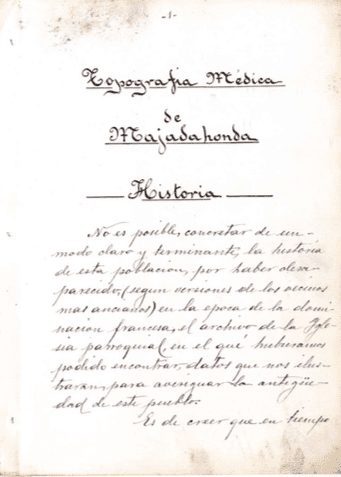 -1-
Topografía Médica
de
Majadahonda
Historia
No es posible, concretar de un
modo claro y terminante, la historia
de esta poblacion, por haber desa-
parecido, (segun versiones de los vecinos
mas ancianos) en la epoca de la domi-
nacion francesa, el archivo de la Igle-
sia parroquial, en el qué hubieramos
podido encontrar, datos que nos ilus-
traran, para averiguar la antigüe-
dad de este pueblo.
Es de creer que en tiempo